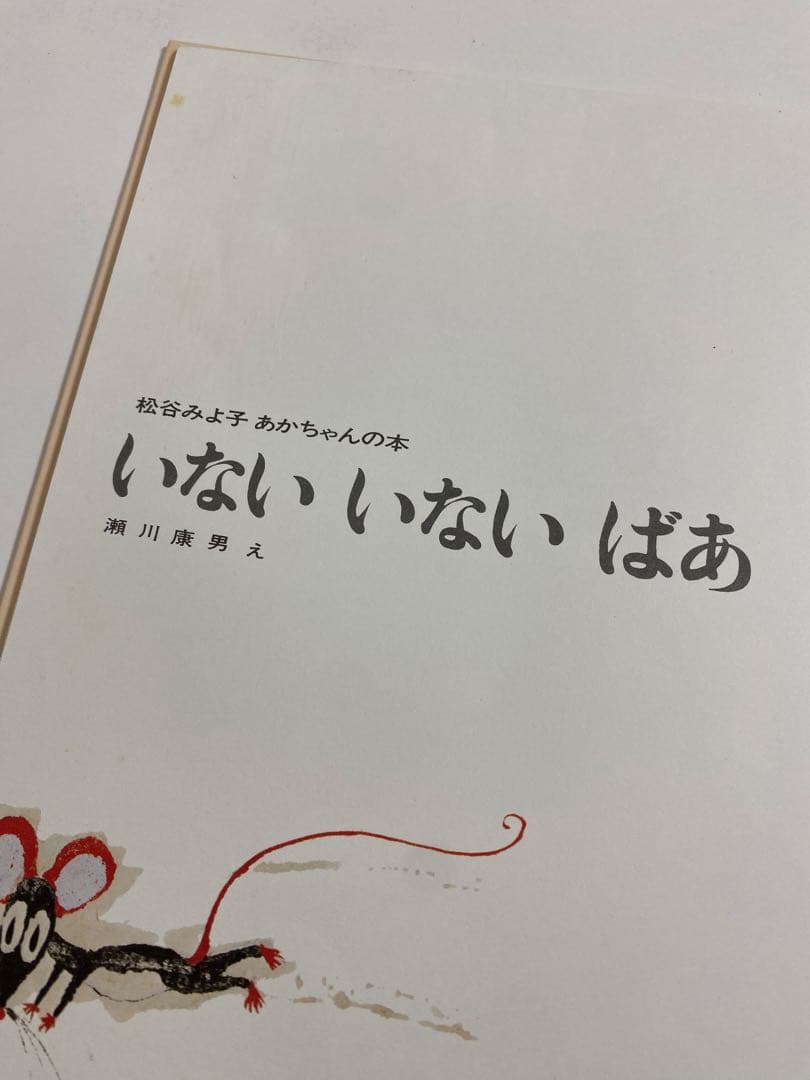 松谷みよ子 あかちゃんの本
いない いない ばあ
瀬川康男 え